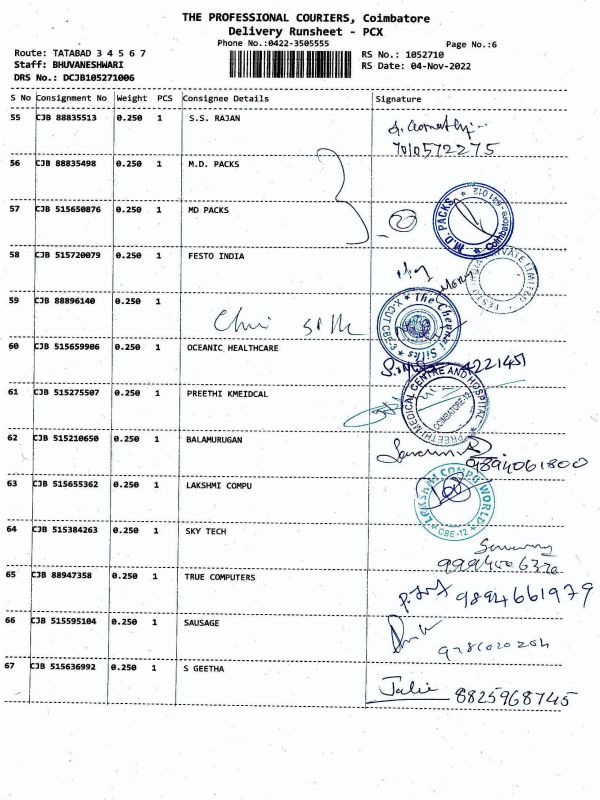 THE PROFESSIONAL COURIERS, Coimbatore
Delivery Runsheet - PCX
Phone No.:0422-3505555
Page No.:6
Route: TATABAD 3 4 5 6 7
Staff: BHUVANESHWARI
DRS No.: DCJB105271006
RS No.: 1052710
RS Date: 04-Nov-2022
S No Consignment No Weight PCS Consignee Details Signature
55 CJB 88835513 0.250 1 S.S. RAJAN
7010572275
56 CJB 88835498 0.250 1 M.D. PACKS
57 CJB 515650876 0.250 1 MD PACKS
M.D. PACKS * Coimbatore - 641 012 *
58 CJB 515720079 0.250 1 FESTO INDIA
FESTO INDIA PRIVATE LIMITED
59 CJB 88896140 0.250 1
The Chennai Silks
60 CJB 515659906 0.250 1 OCEANIC HEALTHCARE
4221451
61 CJB 515275507 0.250 1 PREETHI KMEIDCAL
PREETHI MEDICAL CENTRE AND HOSPITAL
COIMBATORE-12
62 CJB 515210650 0.250 1 BALAMURUGAN
9894061800
63 CJB 515655362 0.250 1 LAKSHMI COMPU
LAKSHMI COMPU WORLD
CBE-12
64 CJB 515384263 0.250 1 SKY TECH
65 CJB 88947358 0.250 1 TRUE COMPUTERS
9894661979
66 CJB 515595104 0.250 1 SAUSAGE
67 CJB 515636992 0.250 1 S GEETHA
8825968745